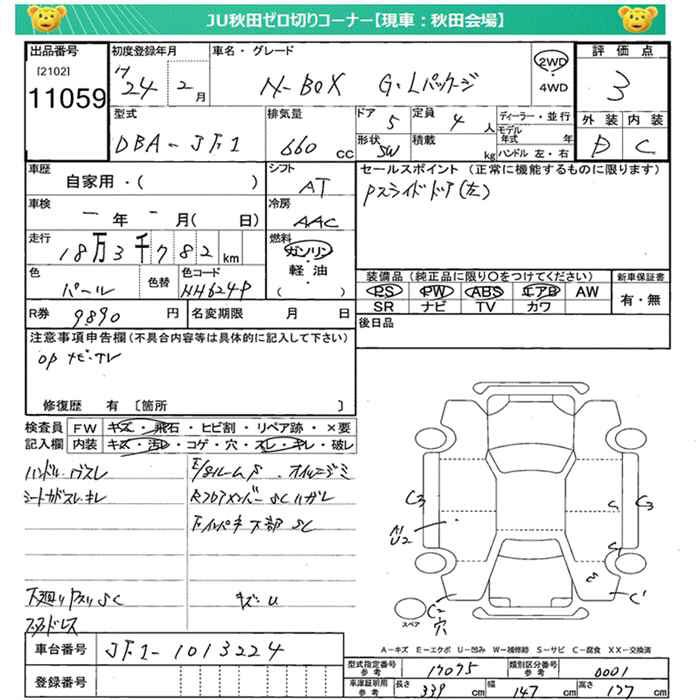 JU秋田ゼロ切りコーナー【現車：秋田会場】
出品番号
[2102]
11059
初度登録年月
H 24 年 2 月
車名・グレード
N-BOX G・Lパッケージ
2WD
4WD
評価点
3
外装 内装
D C
型式
DBA-JF1
排気量
660 cc
ドア
5
定員
4 人
形状
5W
積載
kg
ディーラー・並行
モデル年式 年
ハンドル 左・右
車歴
自家用・( )
シフト
AT
セールスポイント (正常に機能するものに限ります)
Pスライドドア(左)
車検
ー 年 ー 月 ( 日)
冷房
AAC
走行
18万3千782 km
燃料
ガソリン
軽油
( )
色
パール
色替
色コード
NH624P
装備品 (純正品に限り〇をつけてください)
PS PW ABS エアB AW
SR ナビ TV カワ
新車保証書
有・無
R券
9890 円
名変期限 月 日
後日品
注意事項申告欄 (不具合内容等は具体的に記入して下さい)
op ナビ・TV
修復歴 有 〔箇所 〕
検査員記入欄
FW キズ・飛石・ヒビ割・リペア跡・×要
内装 キズ・汚レ・コゲ・穴・スレ・キレ・破レ
ハンドルスレ
E/gルーム下 オイルニジミ
シートカドスレ キレ
RフロアメンバーSCハガレ
下廻りサビSC
キズ・U
C3
C3
A1
U2
C
C
E
C2
穴
C1
スペア
A－キズ E－エクボ U－凹み W－補修跡 S－サビ C－腐食 XX－交換済
車台番号
JF1-1013224
登録番号
型式指定番号 参考
17075
類別区分番号 参考
0001
車庫証明用 参考
長さ 339 cm 幅 147 cm 高さ 177 cm